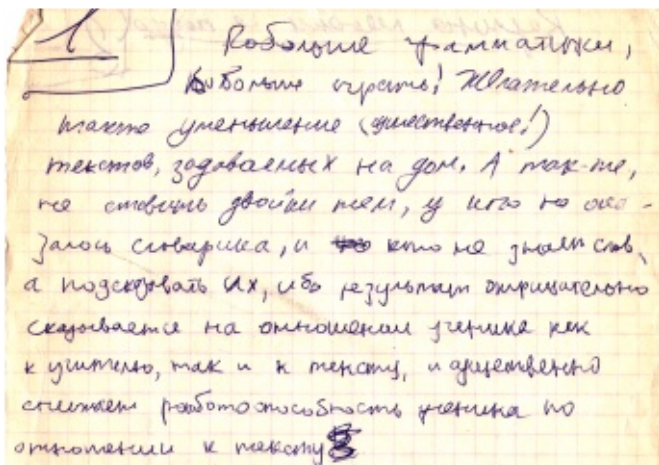 1
Побольше грамматики,
побольше играть! Желательно
также уменьшение (существенное!)
текстов, задоваемых на дом. А так-же,
не ставить двойки тем, у кого не ока-
залось словарика, и кто не знает слов,
а подсказывать их, ибо результат отрицательно
сказывается на отношении ученика как
к учителю, так и к тексту, и существенно
снижает работоспособность ученика по
отношении к тексту